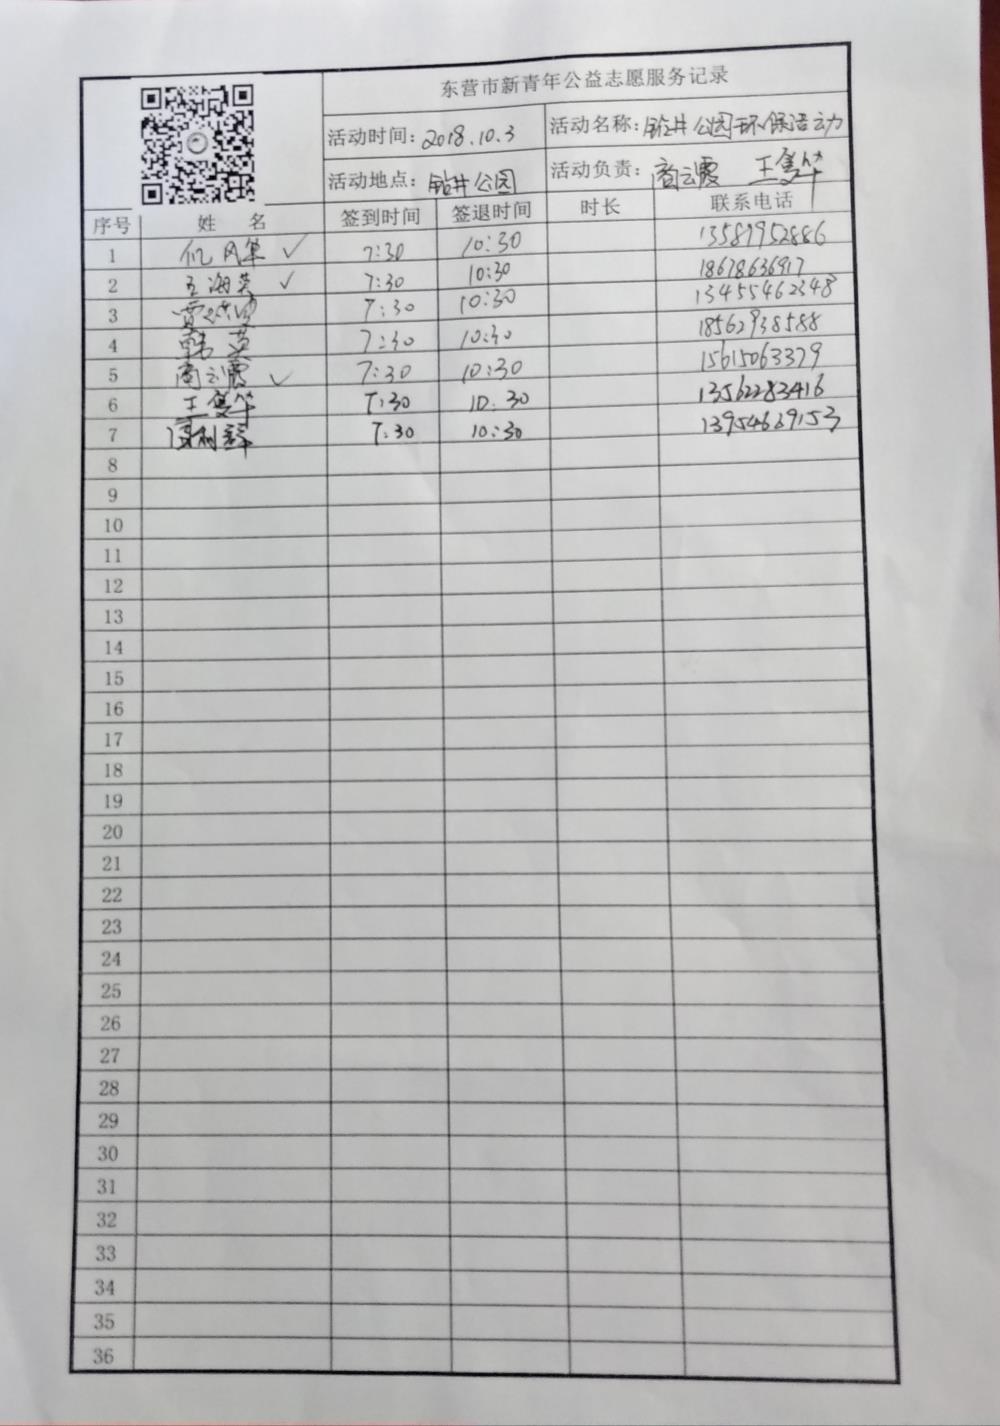 东营市新青年公益志愿服务记录
活动时间: 2018.10.3 活动名称: 钻井公园环保活动
活动地点: 钻井公园 活动负责: 商云霞 王隻华
序号 姓 名 签到时间 签退时间 时长 联系电话
1 7:30 10:30 13589952886
2 王海英 7:30 10:30 18678636917
3 7:30 10:30 13455462348
4 韩英 7:30 10:30 18562938588
5 商云霞 7:30 10:30 15615063379
6 王隻华 7:30 10:30 13562283416
7 7:30 10:30 13954669153
8
9
10
11
12
13
14
15
16
17
18
19
20
21
22
23
24
25
26
27
28
29
30
31
32
33
34
35
36